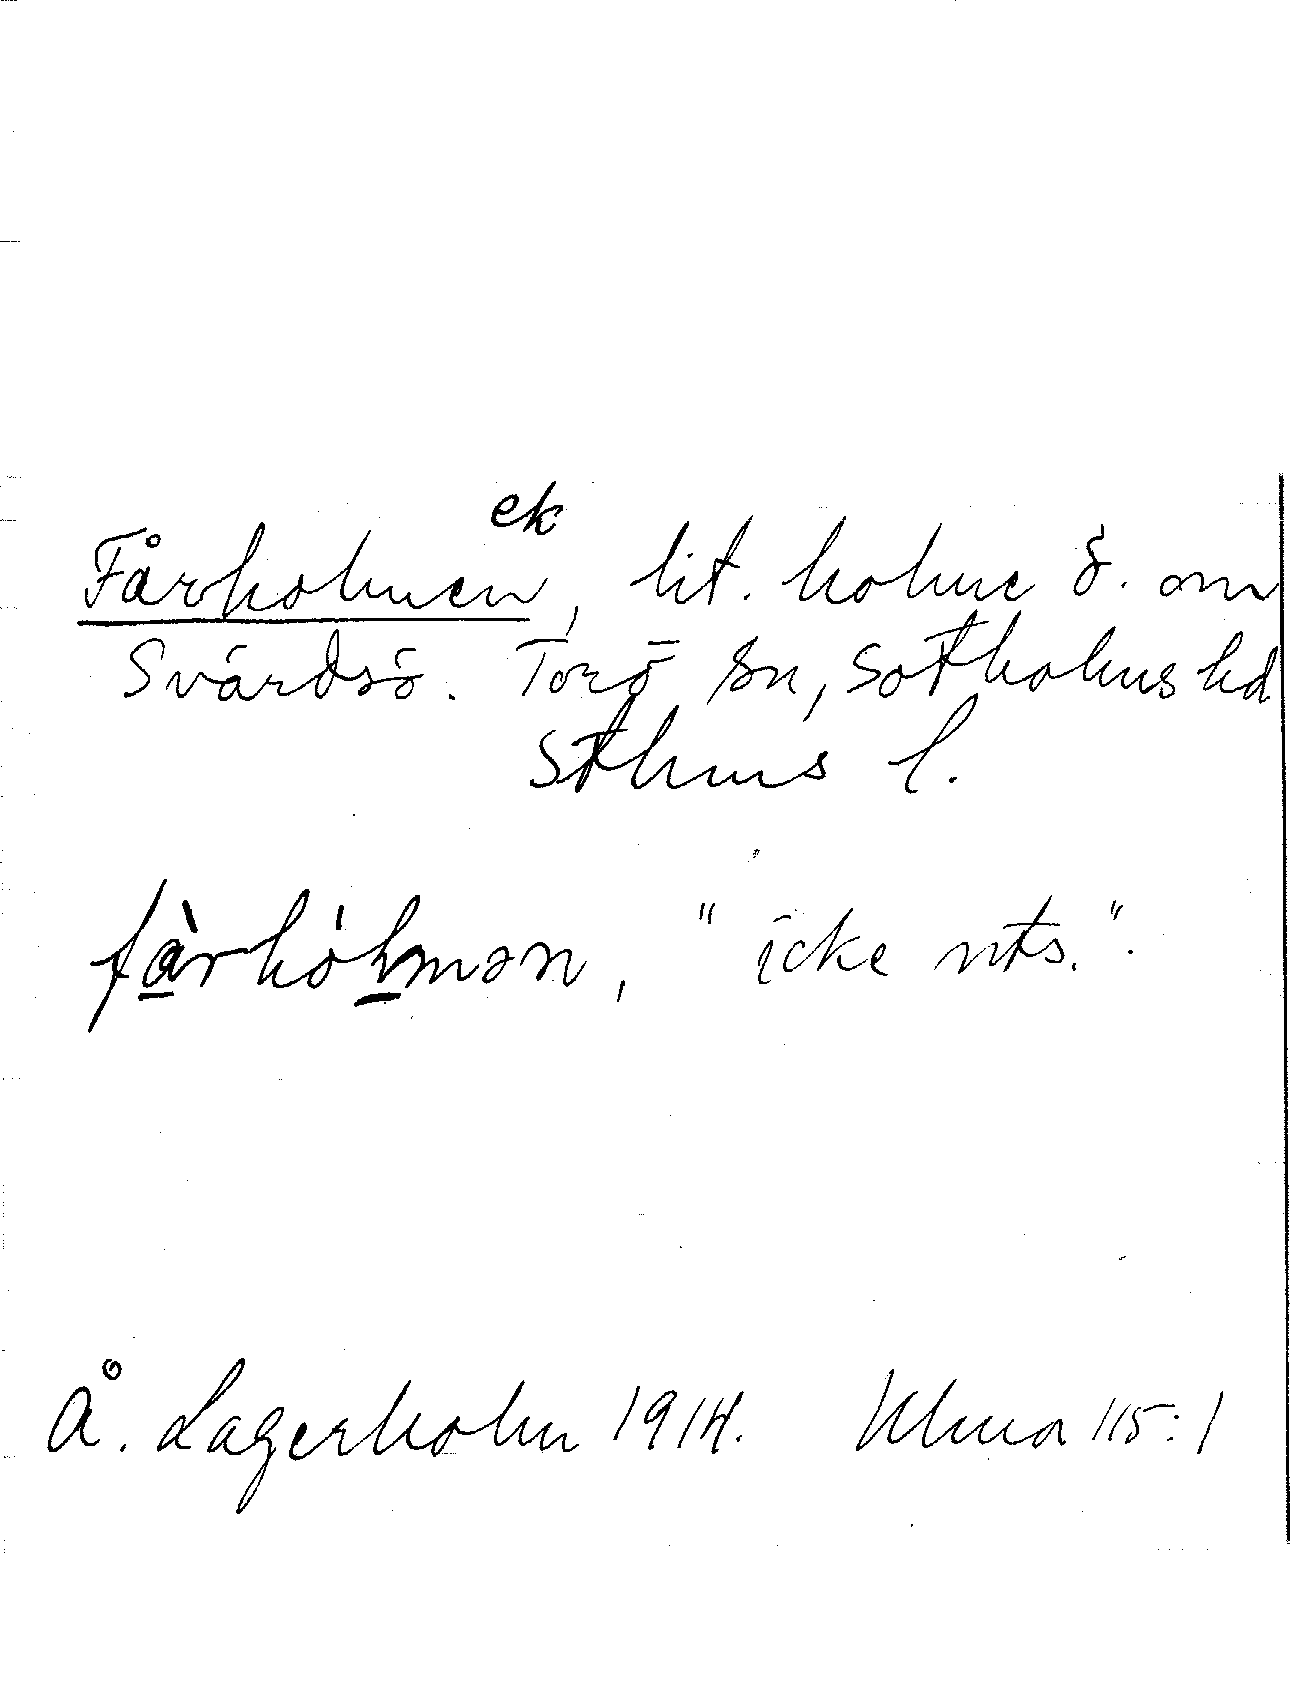 ek
Fårholmen, lit. holme ö. om
Svärdsö. Torö sn, Sotholms hd
Sthms l.
fàrhól̵mən, "icke uts."
Å. Lagerholm 1914. Ulma 115:1